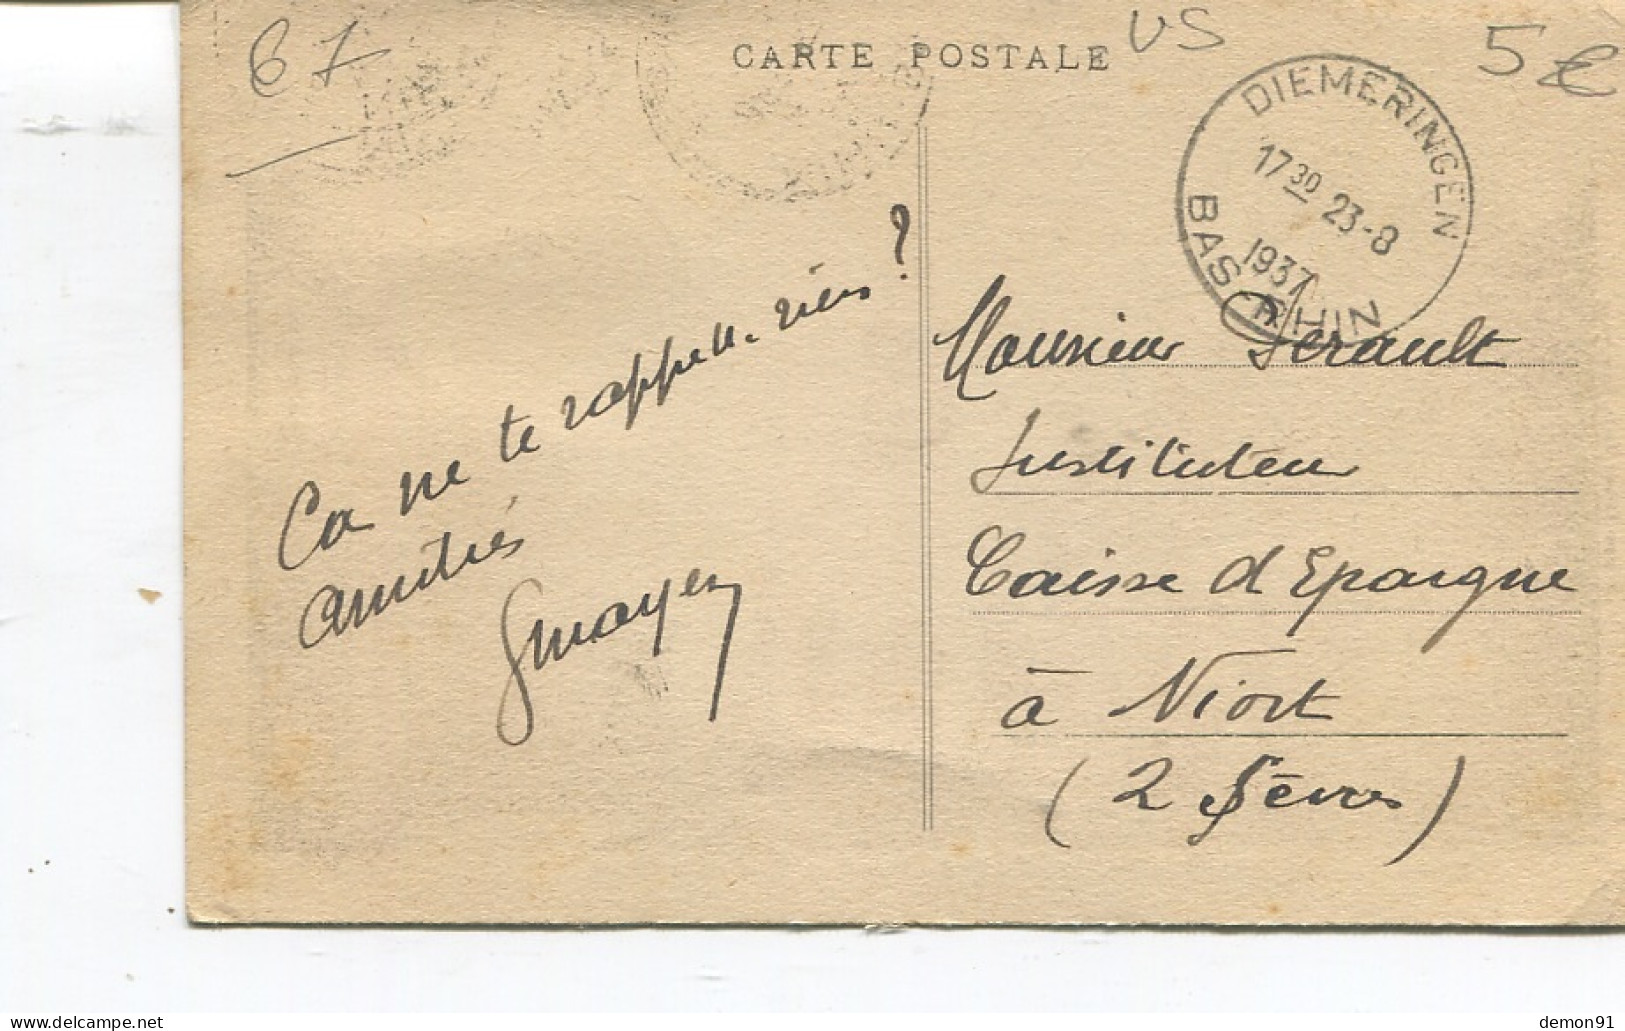 67
CARTE POSTALE
VS
5€
DIEMERINGEN
17 30 23-8
1937
BAS-RHIN
Ca ne te rappelle rien ?
amitiés
Monsieur Perault
Instituteur
Caisse d'Epargne
à Niort
(2 Sèvres)
www.delcampe.net
demon91